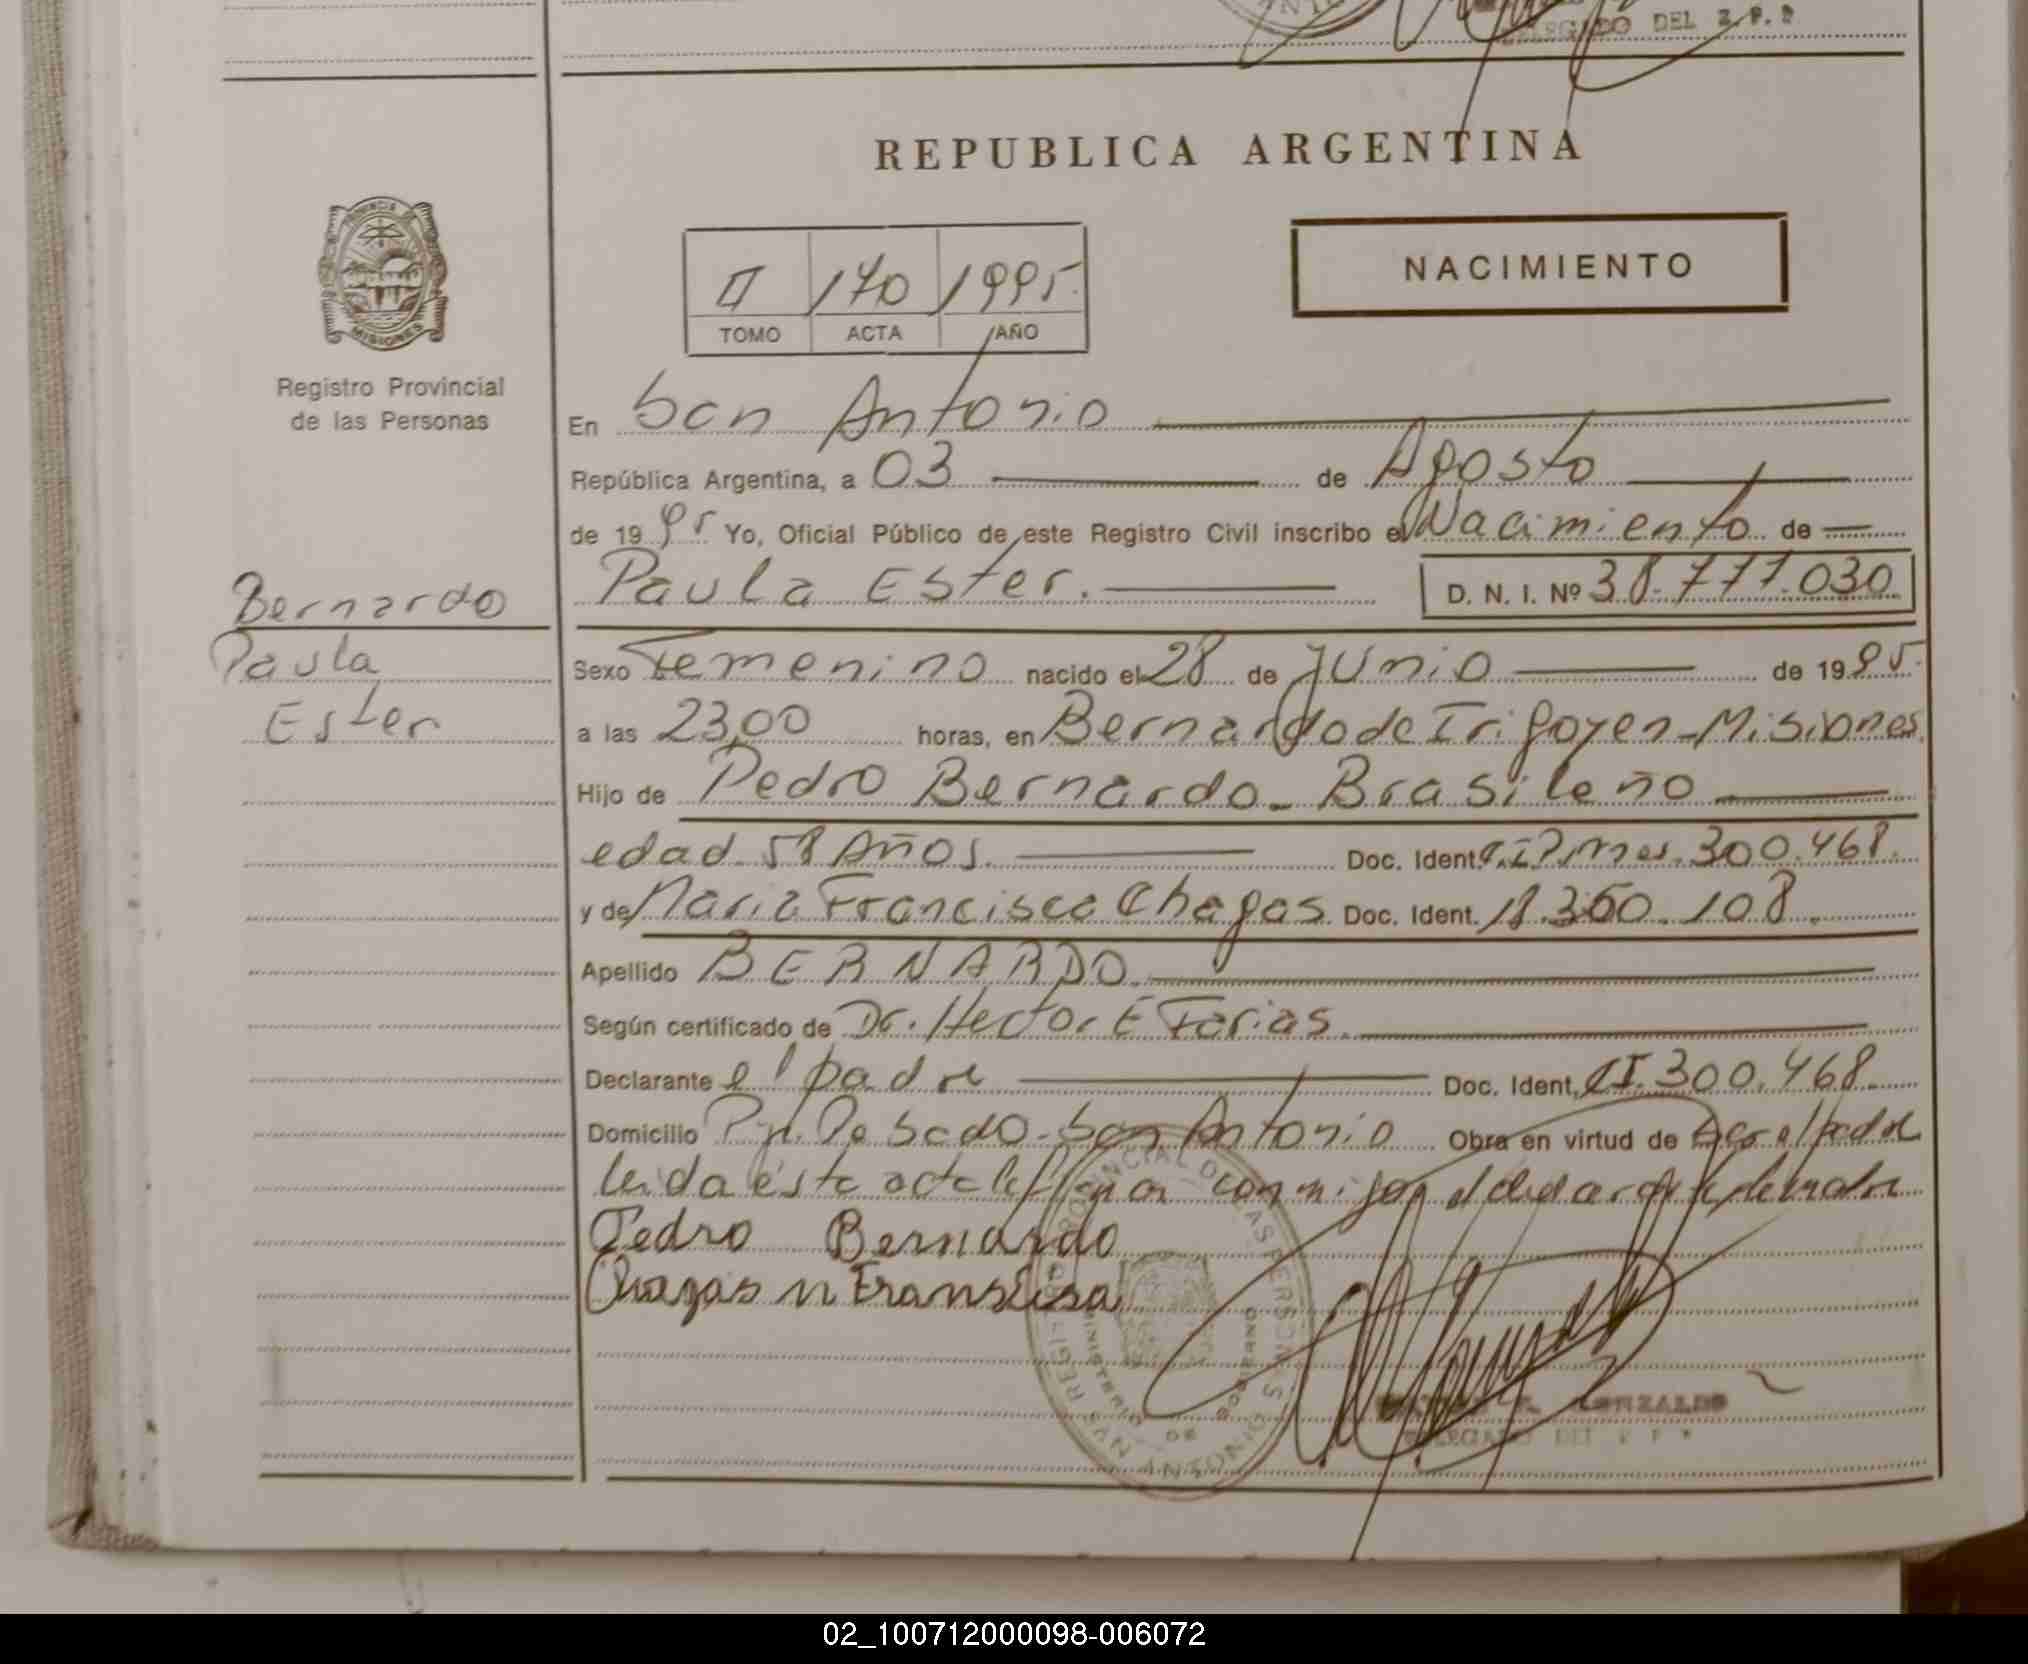 DELEGADO DEL R.P.P
REPUBLICA ARGENTINA
PROVINCIA DE
MISIONES
Registro Provincial
de las Personas
II 170 1995
TOMO ACTA AÑO
NACIMIENTO
En San Antonio
República Argentina, a 03 de Agosto
de 1995 Yo, Oficial Público de este Registro Civil inscribo el Nacimiento de
Paula Ester. D. N. I. Nº 38.777.030
Bernardo
Paula
Ester
Sexo Femenino nacido el 28 de Junio de 1995.
a las 23,00 horas, en Bernardo de Irigoyen-Misiones.
Hijo de Pedro Bernardo- Brasileño
edad 58 Años. Doc. Ident. 300.468.
y de Maria Francisca Chagas Doc. Ident. 18.360.108.
Apellido BERNARDO.
Según certificado de Dr. Hector E Farias.
Declarante el padre Doc. Ident, CI.300.468.
Domicilio Pje. Posado-San Antonio Obra en virtud de el padre
leida ésta acta la firman conmigo el declarante y la madre
Pedro Bernardo
Chagas M Fransisa
REGISTRO PROVINCIAL DE LAS PERSONAS
MINISTERIO DE GOBIERNO
SAN ANTONIO
GONZALES
DELEGADO DEL R P P